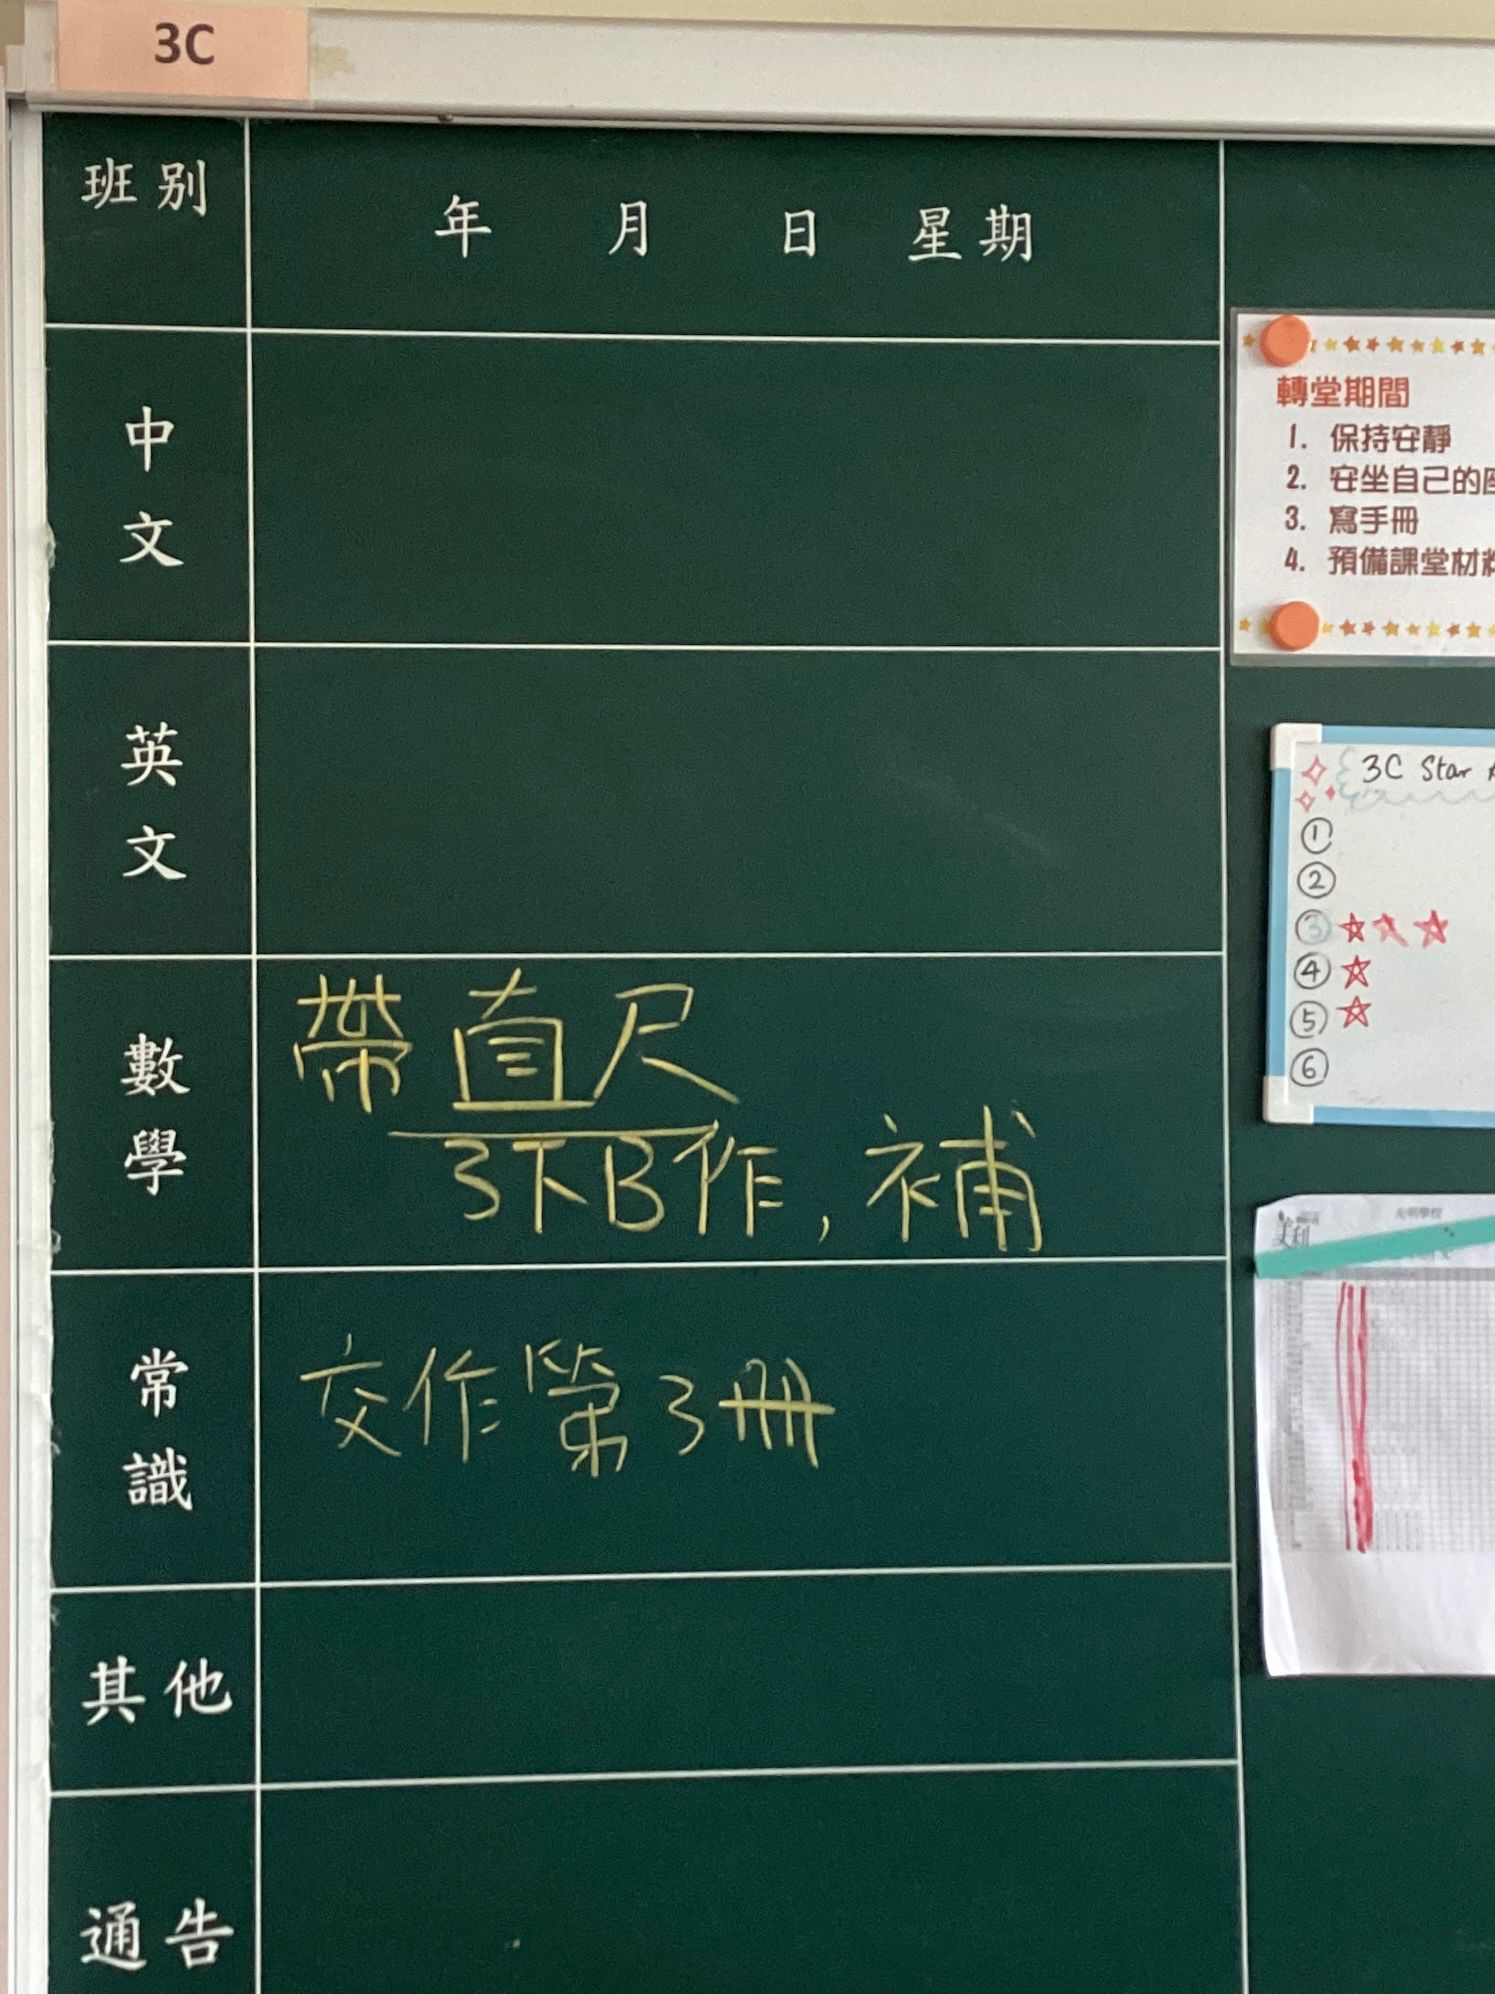 3C
班別
年 月 日 星期
中文
英文
數學
帶直尺
3下B作, 補
常識
交作第3冊
其他
通告
轉堂期間
1. 保持安靜
2. 安坐自己的
3. 寫手冊
4. 預備課堂材
3C Star
①
②
③
④
⑤
⑥